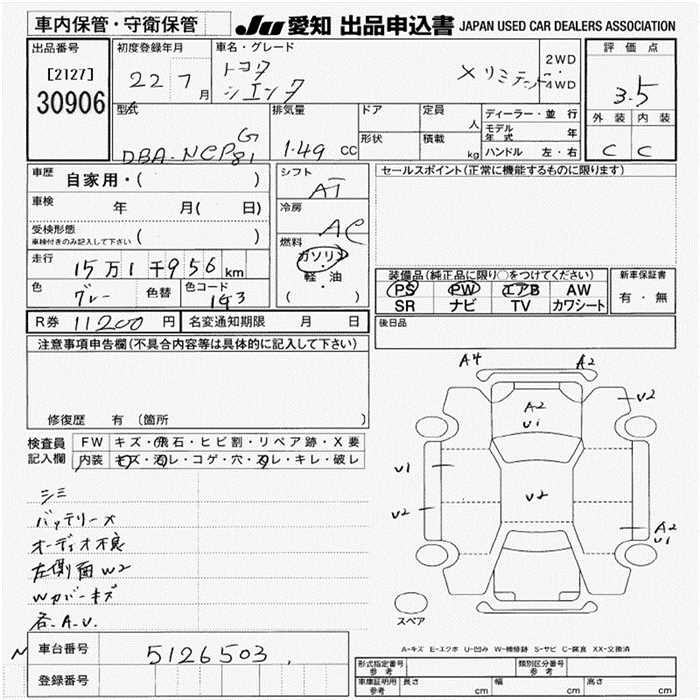 車内保管・守衛保管
JU 愛知 出品申込書 JAPAN USED CAR DEALERS ASSOCIATION
出品番号
[2127]
30906
初度登録年月
22 7月
車名・グレード
トヨタ
シエンタ
X リミテッド
2WD
4WD
評価点
3.5
外装 内装
C C
型式
G
DBA-NCP81
排気量
1.49 cc
ドア
形状
定員 人
積載 kg
ディーラー・並行
モデル年式 年
ハンドル 左・右
車歴
自家用・( )
車検
年 月( 日)
受検形態
車検付きのみ記入して下さい ( )
シフト
AT
冷房
AC
燃料
ガソリン
・
軽・油
( )
セールスポイント(正常に機能するものに限ります)
走行
15万1千956km
色
グレー
色替
色コード
1G3
装備品(純正品に限り○をつけてください)
PS PW エアB AW
SR ナビ TV カワシート
新車保証書
有・無
R券 11200円
名変通知期限 月 日
後日品
注意事項申告欄(不具合内容等は具体的に記入して下さい)
修復歴 有 (箇所 )
検査員
記入欄
FW キズ・飛石・ヒビ割・リペア跡・X要
内装 キズ・汚レ・コゲ・穴・スレ・キレ・破レ
シミ
バッテリーX
オーディオ不良
左側面W2
Wカバーキズ
各.A.U.
A4
A2
A2
U1
U2
U1
U2
U2
A2
U1
スペア
A-キズ E-エクボ U-凹み W-補修跡 S-サビ C-腐食 XX-交換済
車台番号
5126503
登録番号
型式指定番号
参考
類別区分番号
参考
車庫証明用
参考
長さ cm
幅 cm
高さ cm